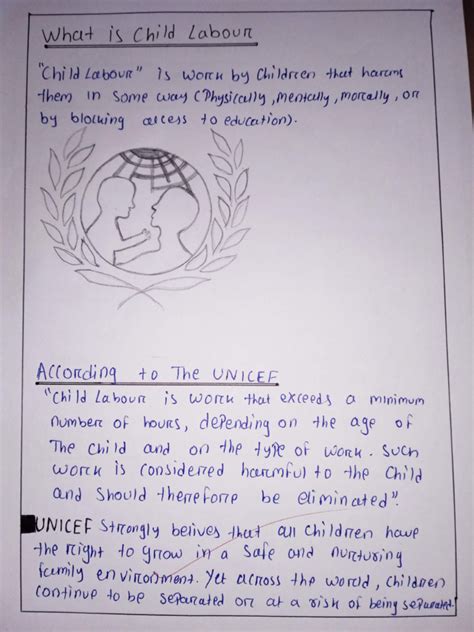 What is Child Labour
"Child Labour" is work by Children that harms
them in some way (Physically, mentally, morally, or
by blocking access to education).
According to The UNICEF
"Child Labour is work that exceeds a minimum
number of hours, depending on the age of
The child and on the type of work. Such
work is considered harmful to the Child
and should therefore be eliminated".
UNICEF Strongly belives that all Children have
the right to grow in a safe and nurturing
family environment. Yet across the world, children
continue to be separated or at a risk of being separated.